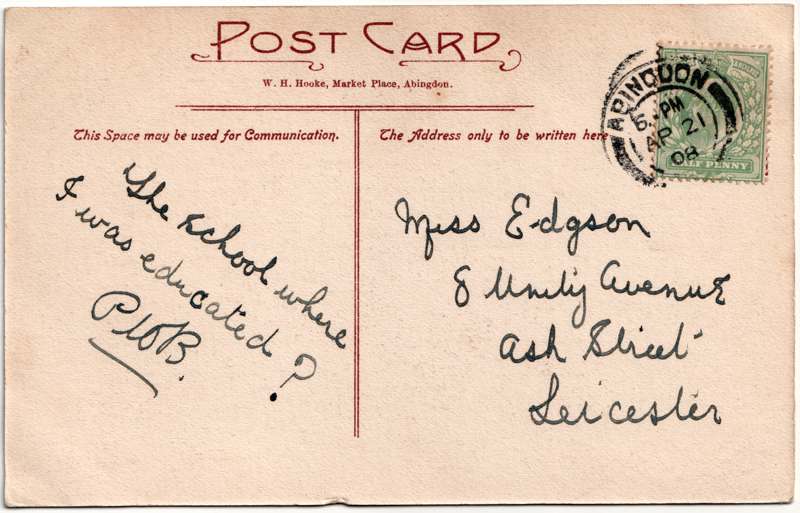 POST CARD
W. H. Hooke, Market Place, Abingdon.
This Space may be used for Communication.
The Address only to be written here
ABINGDON
PM
AP 21
08
HALF PENNY
The school where
I was educated?
PWB.
Miss Edgson
8 Unity Avenue
Ash Street
Leicester